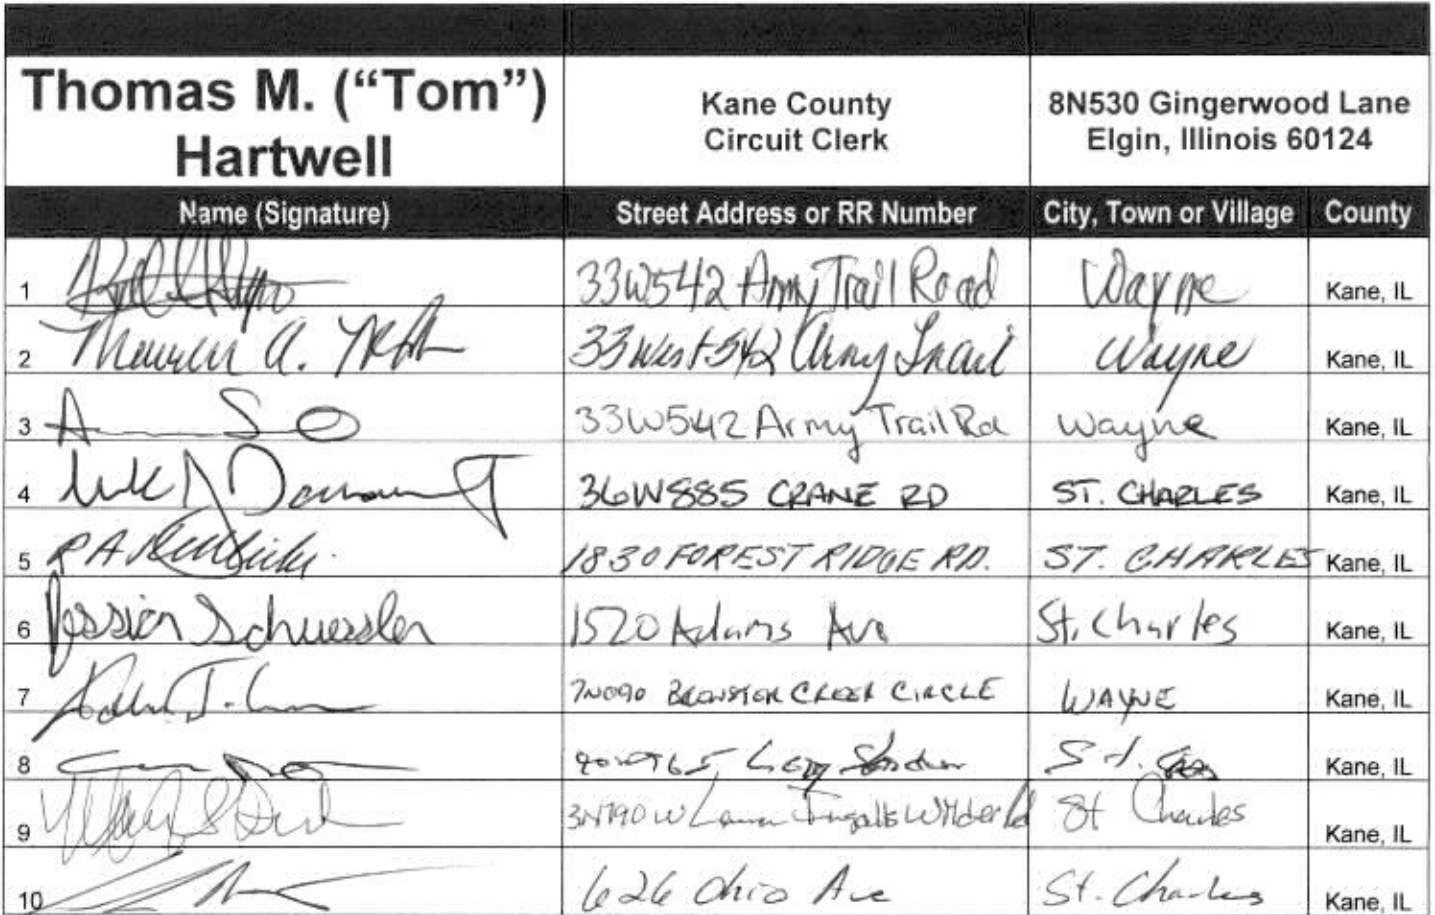 Thomas M. ("Tom")
Hartwell
Kane County
Circuit Clerk
8N530 Gingerwood Lane
Elgin, Illinois 60124
Name (Signature) Street Address or RR Number City, Town or Village County
1 33W542 Army Trail Road Wayne Kane, IL
2 Maureen A. 33West542 Army Trail Wayne Kane, IL
3 33W542 Army Trail Rd Wayne Kane, IL
4 36W885 CRANE RD ST. CHARLES Kane, IL
5 R A 1830 FOREST RIDGE RD. ST. CHARLES Kane, IL
6 Jessica Schuessler 1520 Adams Ave St. Charles Kane, IL
7 7N090 CREEK CIRCLE WAYNE Kane, IL
8 St. Kane, IL
9 Laura Ingalls Wilder Rd St Charles Kane, IL
10 626 Ohio Ave St. Charles Kane, IL